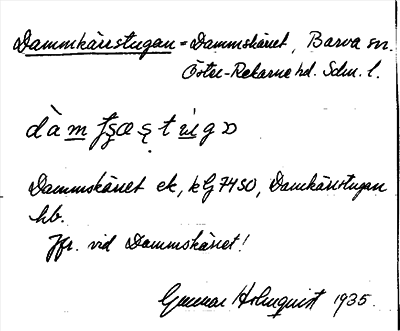 Dammkärstugan = Dammskäret, Barva sn.
Öster-Rekarne hd. Sdm. l.
Dammskäret ek, Damkärstugan
hb.
Jfr. vid Dammskäret!
Gunnar Holmquist 1935.